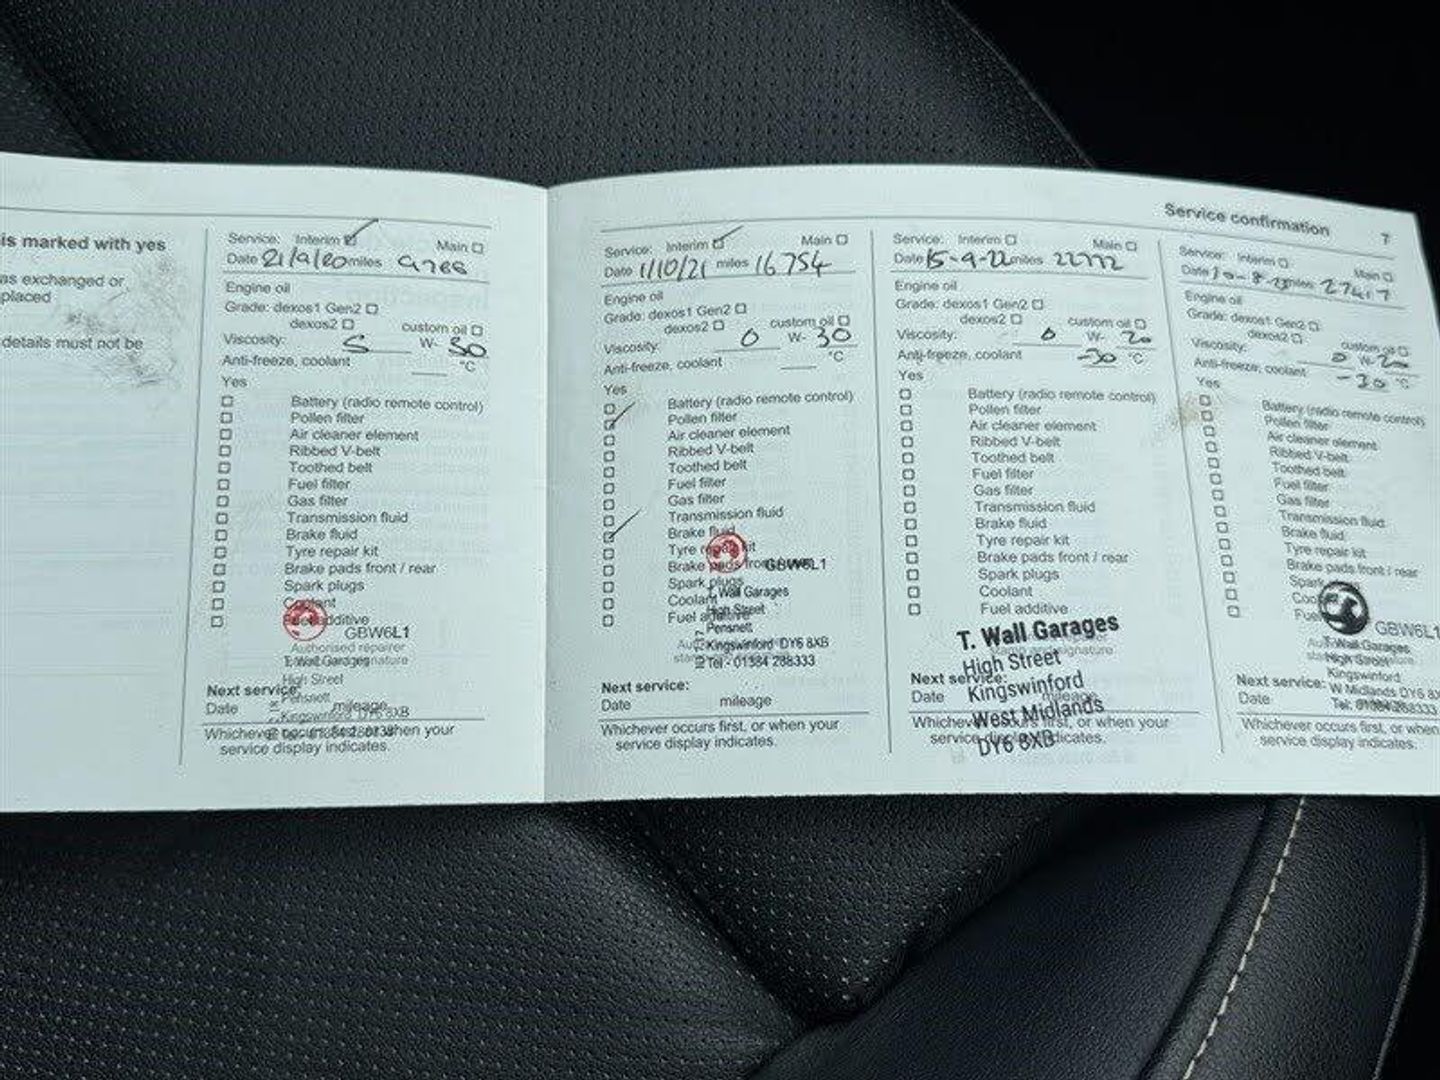 is marked with yes
as exchanged or
placed
details must not be
Service: Interim Main
Date 21/9/20 miles
Engine oil
Grade: dexos1 Gen2
dexos2 custom oil
Viscosity: 5 W- 30
Anti-freeze, coolant °C
Yes
Battery (radio remote control)
Pollen filter
Air cleaner element
Ribbed V-belt
Toothed belt
Fuel filter
Gas filter
Transmission fluid
Brake fluid
Tyre repair kit
Brake pads front / rear
Spark plugs
Coolant
Fuel additive
GBW6L1
Authorised repairer
T. Wall Garages
High Street
Next service: Pensnett
Date mileage
Kingswinford DY6 8XB
Whichever occurs first, or when your
service display indicates.
Service: Interim Main
Date 1/10/21 miles 16754
Engine oil
Grade: dexos1 Gen2
dexos2 custom oil
Viscosity: 0 W- 30
Anti-freeze, coolant °C
Yes
Battery (radio remote control)
Pollen filter
Air cleaner element
Ribbed V-belt
Toothed belt
Fuel filter
Gas filter
Transmission fluid
Brake fluid
Tyre repair kit
Brake pads front / rear GBW6L1
Spark plugs
T. Wall Garages
Coolant
High Street
Fuel additive
Pensnett
Kingswinford DY6 8XB
Tel - 01384 288333
Next service:
Date mileage
Whichever occurs first, or when your
service display indicates.
Service confirmation 7
Service: Interim Main
Date 15-9-22 miles 22772
Engine oil
Grade: dexos1 Gen2
dexos2 custom oil
Viscosity: 0 W- 20
Anti-freeze, coolant -30 °C
Yes
Battery (radio remote control)
Pollen filter
Air cleaner element
Ribbed V-belt
Toothed belt
Fuel filter
Gas filter
Transmission fluid
Brake fluid
Tyre repair kit
Brake pads front / rear
Spark plugs
Coolant
Fuel additive
T. Wall Garages
High Street
Next service:
Kingswinford
Date mileage
West Midlands
Whichever occurs first, or when your
DY6 8XB
service display indicates.
Service: Interim Main
Date 10-8-23 miles 27417
Engine oil
Grade: dexos1 Gen2
dexos2 custom oil
Viscosity: 0 W- 20
Anti-freeze, coolant -30 °C
Yes
Battery (radio remote control)
Pollen filter
Air cleaner element
Ribbed V-belt
Toothed belt
Fuel filter
Gas filter
Transmission fluid
Brake fluid
Tyre repair kit
Brake pads front / rear
Spark
GBW6L1
T. Wall Garages
High Street
Kingswinford
Next service:
W Midlands DY6 8XB
Date
Whichever occurs first, or when
service display indicates.